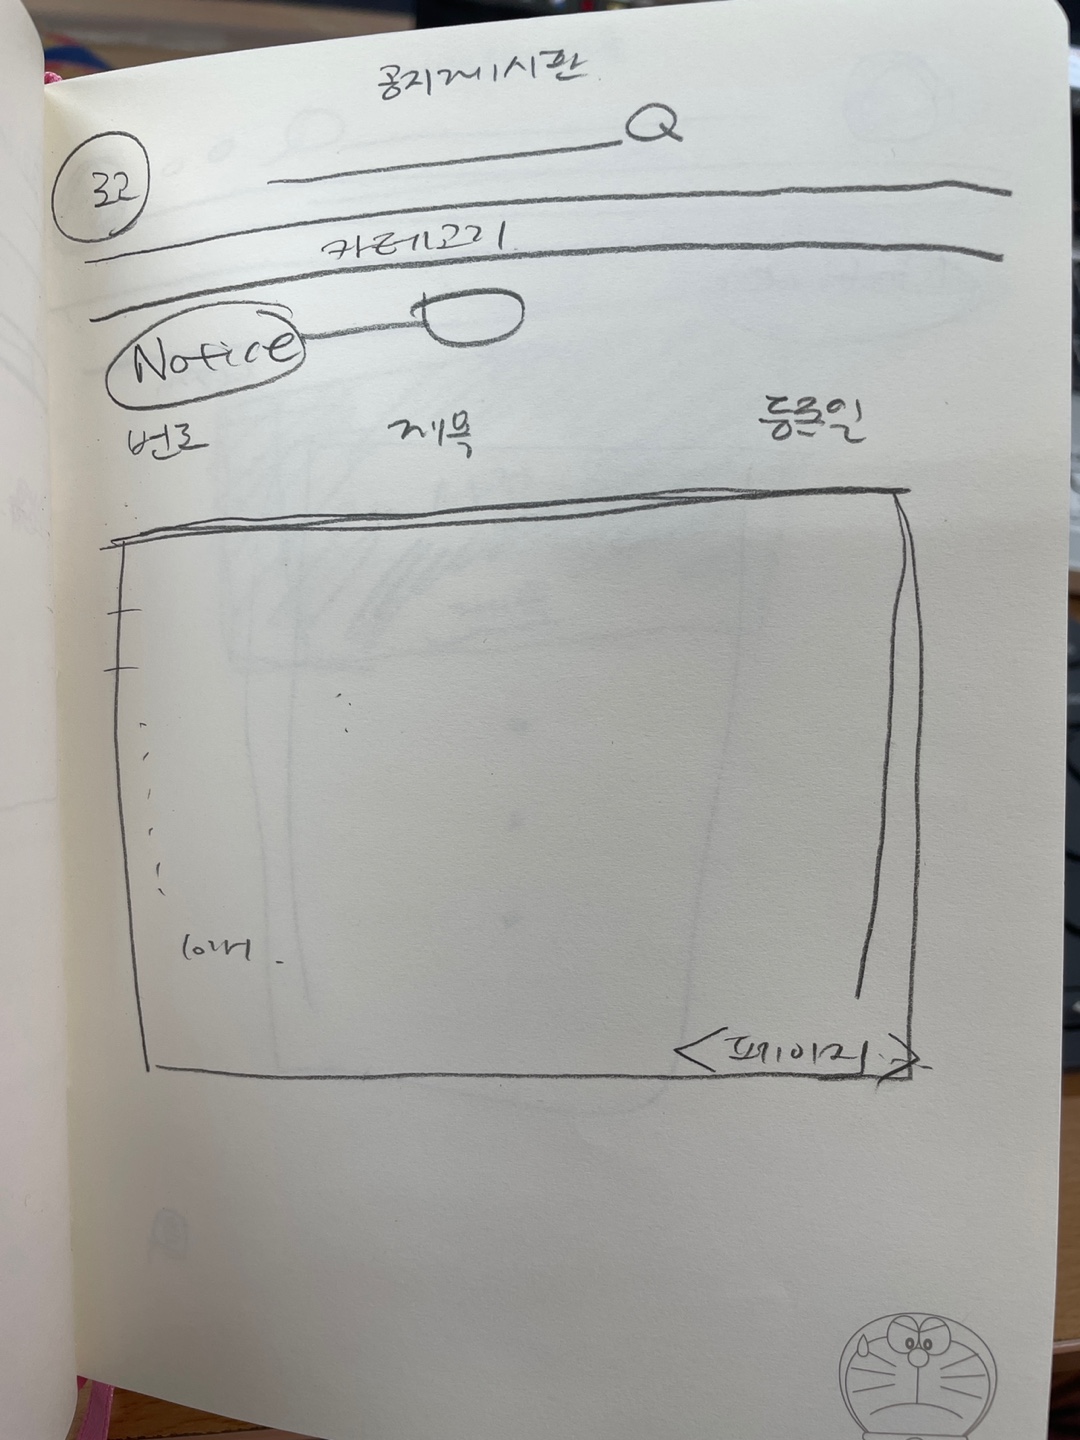 공지게시판
로고
카테고리
Notice
번호 제목 등록일
10개
< 페이지 >